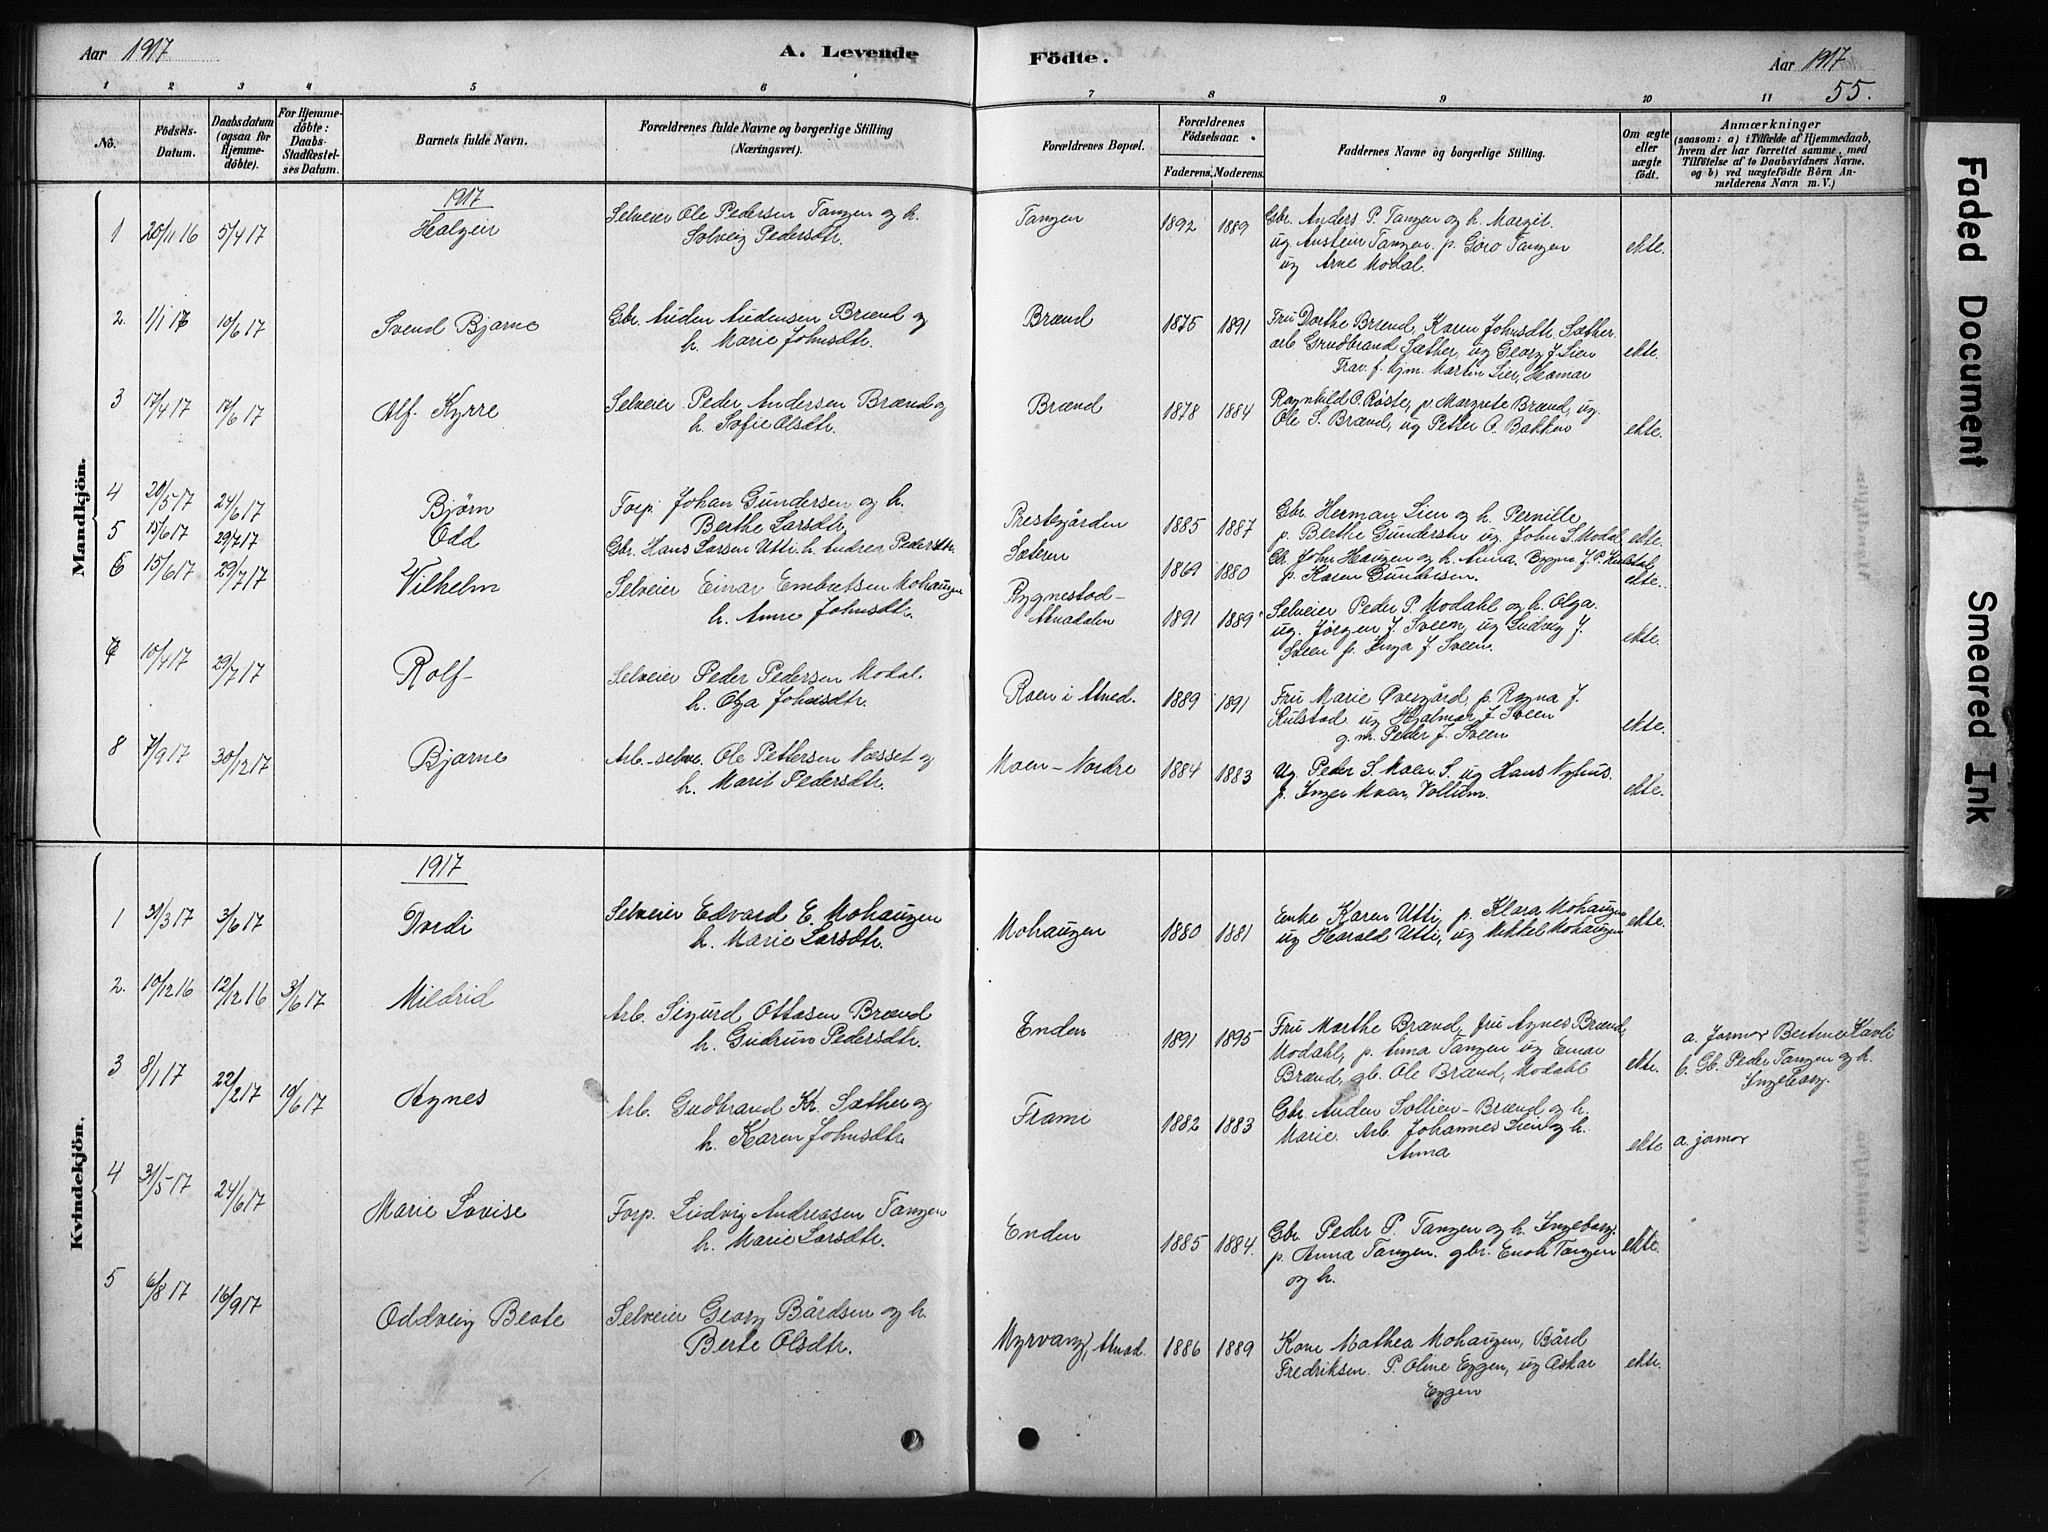 Aar 1917
A. Levende
Födte.
Aar 1917
55.
1 2 3 4 5 6 7 8 9 10 11
No.
Födsels-Datum.
Daabsdatum (ogsaa for Hjemmedöbte).
For Hjemmedöbte: Daabs-Stadfæstelses Datum.
Barnets fulde Navn.
Forældrenes fulde Navne og borgerlige Stilling (Næringsvei).
Forældrenes Bopæl.
Forældrenes Födselsaar.
Faderens. Moderens.
Faddernes Navne og borgerlige Stilling.
Om ægte eller uægte födt.
Anmærkninger
(saasom: a) i Tilfælde af Hjemmedaab, hvem der har forrettet samme, med Tilföielse af to Daabsvidners Navne. og b) ved uægtefödte Börn Anmelderens Navn m. V.)
Mandkjön.
1917
1 20/11 16 5/4 17 Halgeir
Selveier Ole Pedersen Tangen og h.
Solveig Pedersdtr.
Tangen 1892 1889
Gbr. Anders P. Tangen og h. Margit.
ug. Austein Tangen. p. Goro Tangen
ug Arne Modal.
ekte.
2. 1/1 17 10/6 17 Svend Bjarne
Gbr. Auden Audensen Brænd og
h. Marie Johnsdtr.
Brænd 1875 1891
Fru Dorthe Brænd, Karen Johnsdtr. Sæther.
arb. Gudbrand Sæther, ug Georg J. Lien
Frav. f. hjm. Martin Lien, Hamar
ekte.
3 17/4 17 17/6 17 Alf Kyrre
Selveier Peder Andersen Brænd og
h. Sofie Olsdtr.
Brænd 1878 1884
Ragnhild O. Røste, p. Margrete Brænd, ug.
Ole S. Brænd, ug Petter O. Bakken
ekte.
4 20/5 17 24/6 17 Bjørn
Forp. Johan Gundersen og h.
Berthe Larsdtr,
Prestegården 1885 1887
Gbr. Herman Lien og h. Pernille,
p. Berthe Gundersen ug. John S. Modal
ekte.
5 15/6 17 29/7 17 Odd
Gbr. Hans Larsen Utti h. Andrea Pedersdtr.
Sæteren 1869 1880
Gbr. John Haugen og h. Anna. Ragna J. P. Kulstad
p. Karen Gundersen.
ekte.
6 15/6 17 29/7 17 Vilhelm
Selveier Einar Embretsen Mohaugen
h. Anne Johnsdtr.
Rygnestad-
Atnadalen 1891 1889
Selveier Peder P. Modahl og h. Olga.
ug. Jørgen J. Sveen, ug Ludvig J.
Sveen p. Inga J. Sveen.
ekte.
7 10/4 17 29/7 17 Rolf
Selveier Peder Pedersen Modal.
h. Olga Johnsdtr.
Roen i Atned. 1889 1891
Fru Marie Øvergård, p. Ragna J.
Kulstad ug Hjalmar J. Sveen
g. m. Peder J. Sveen
ekte.
8 7/9 17 30/12 17 Bjarne
Arb.-selve. Ole Pettersen Næsset og
h. Marit Pedersdtr.
Moen-Nordre 1884 1883
Ug. Peder S. Moen S. ug Hans Nyhus.
p. Inger Moen, Vollum.
ekte.
Kvindekjön.
1917
1 31/3 17 3/6 17 Tordi
Selveier Edvard E. Mohaugen
h. Marie Larsdtr.
Mohaugen 1880 1881
Enke Karen Utti, p. Klara Mohaugen
ug Harald Utti, ug Mikkel Mohaugen
ekte.
2. 10/12 16 12/12 16 3/6 17 Mildrid
Arb. Sigurd Ottosen Brænd
h. Gudrun Pedersdtr.
Enden 1891 1895
Fru Marthe Brænd, fru Agnes Brænd,
Modahl, p. Anna Tangen ug Einar
Brænd, gb. Ole Brænd, Modahl
ekte.
a. Jormor Bertine Havli
b. Gb. Peder Tangen og h.
Ingeborg.
3 8/1 17 22/2 17 10/6 17 Agnes
Arb. Gudbrand Kr. Sæther og
h. Karen Johnsdtr.
Frami 1882 1883
Gbr. Auden Sollien-Brænd og h.
Marie. Arb. Johannes Lien og h.
Anna
ekte
a. jormor
4 31/5 17 24/6 17 Marie Lovise
Forp. Ludvig Andreasen Tangen
h. Marie Larsdtr.
Enden 1885 1884.
Gbr. Peder P. Tangen og h. Ingeborg.
p. Anna Tangen. gbr. Enok Tangen
og h.
ekte.
5 6/8 17 16/9 17 Oddveig Beate
Selveier Georg Bårdsen og h.
Berte Olsdtr.
Myrvang, Atnad. 1886 1889
Kone Mathea Mohaugen, Bård
Fredriksen. P. Oline Eggen, ug Askar
Eggen
ekte.
Faded Document
Smeared Ink